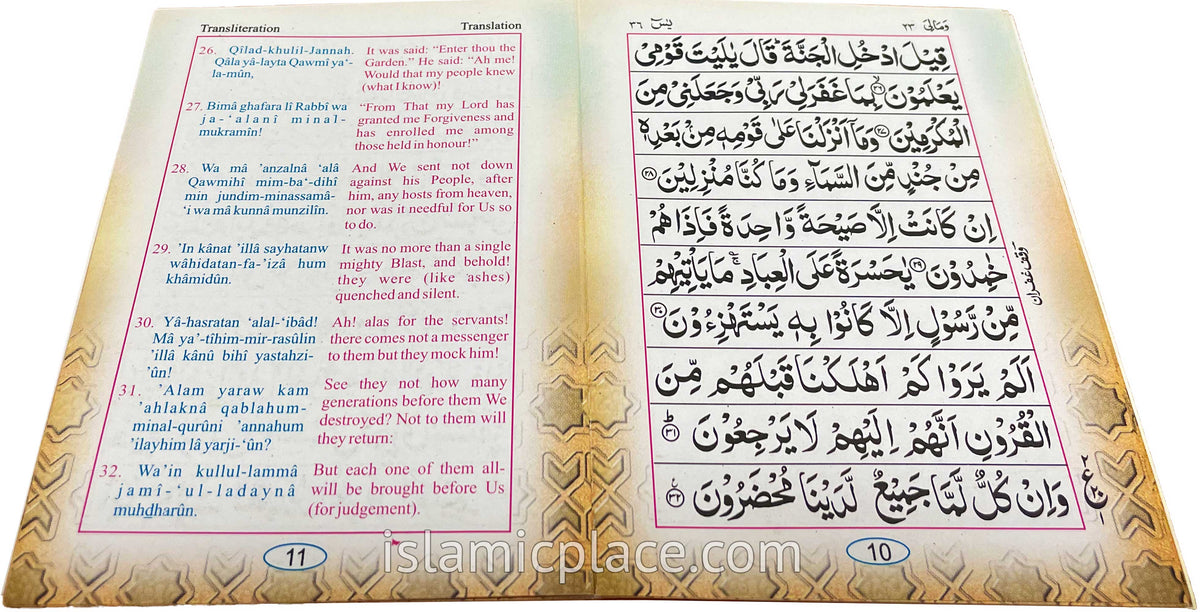 Transliteration
Translation
26. Qîlad-khulil-Jannah.
Qâla yâ-layta Qawmî ya‘-
la-mûn,
It was said: “Enter thou the
Garden.” He said: “Ah me!
Would that my people knew
(what I know)!
27. Bimâ ghafara lî Rabbî wa
ja-‘alanî minal-
mukramîn!
“From That my Lord has
granted me Forgiveness and
has enrolled me among
those held in honour!”
28. Wa mâ ’anzalnâ ‘alâ
Qawmihî mim-ba‘-dihî
min jundim-minassamâ-
‘i wa mâ kunnâ munzilîn.
And We sent not down
against his People, after
him, any hosts from heaven,
nor was it needful for Us so
to do.
29. ’In kânat ’illâ sayhatanw
wâhidatan-fa-’izâ hum
khâmidûn.
It was no more than a single
mighty Blast, and behold!
they were (like ashes)
quenched and silent.
30. Yâ-hasratan ‘alal-‘ibâd!
Mâ ya’-tîhim-mir-rasûlin
’illâ kânû bihî yastahzi-
’ûn!
Ah! alas for the servants!
there comes not a messenger
to them but they mock him!
31. ’Alam yaraw kam
’ahlaknâ qablahum-
minal-qurûni ’annahum
’ilayhim lâ yarji-‘ûn?
See they not how many
generations before them We
destroyed? Not to them will
they return:
32. Wa’in kullul-lammâ
jamî-‘ul-ladaynâ
muhdharûn.
But each one of them all-
will be brought before Us
(for judgement).
11
يٰسٓ ٣٦
وَمَالِیَ ٢٣
قِيْلَ ادْخُلِ الْجَنَّةَ ؕ قَالَ يٰلَيْتَ قَوْمِيْ
يَعْلَمُوْنَ ﴿٢٦﴾ بِمَا غَفَرَ لِيْ رَبِّيْ وَجَعَلَنِيْ مِنَ
الْمُكْرَمِيْنَ ﴿٢٧﴾ وَمَآ اَنْزَلْنَا عَلٰى قَوْمِهٖ مِنْۢ بَعْدِهٖ
مِنْ جُنْدٍ مِّنَ السَّمَآءِ وَمَا كُنَّا مُنْزِلِيْنَ ﴿٢٨﴾
اِنْ كَانَتْ اِلَّا صَيْحَةً وَّاحِدَةً فَاِذَا هُمْ
خٰمِدُوْنَ ﴿٢٩﴾ يٰحَسْرَةً عَلَى الْعِبَادِ ۚ مَا يَاْتِيْهِمْ
مِّنْ رَّسُوْلٍ اِلَّا كَانُوْا بِهٖ يَسْتَهْزِءُوْنَ ﴿٣٠﴾
اَلَمْ يَرَوْا كَمْ اَهْلَكْنَا قَبْلَهُمْ مِّنَ
الْقُرُوْنِ اَنَّهُمْ اِلَيْهِمْ لَا يَرْجِعُوْنَ ﴿٣١﴾
وَاِنْ كُلٌّ لَّمَّا جَمِيْعٌ لَّدَيْنَا مُحْضَرُوْنَ ﴿٣٢﴾
وقف غفران
10
islamicplace.com